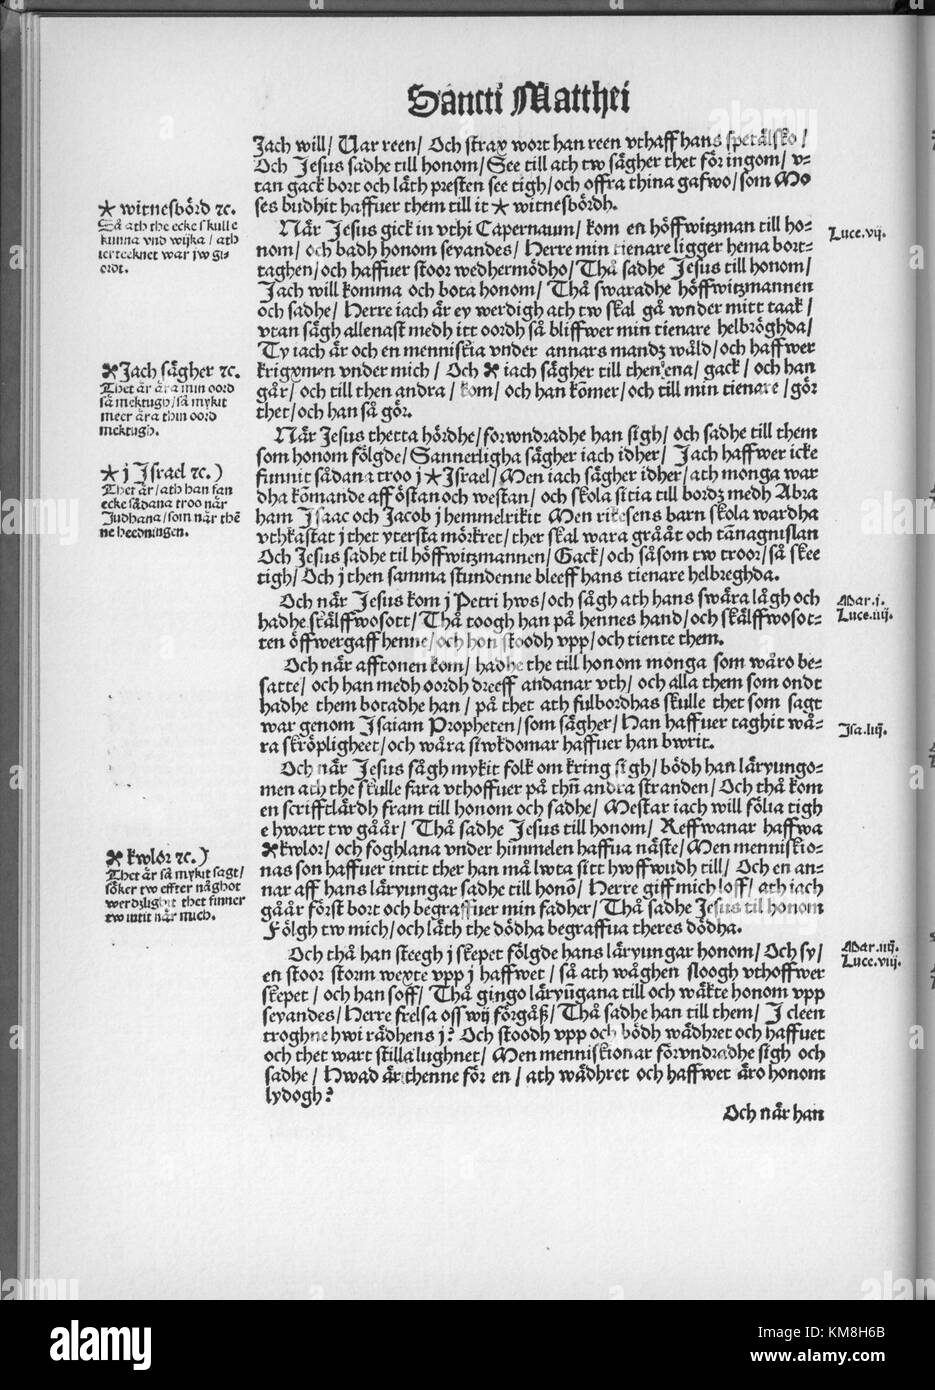 Sancti Matthei
Jach will/ Uar reen/ Och strax wort han reen vthaff hans spetålsko/
Och Jesus sadhe till honom/ See till ath tw sågher thet för ingom/ v-
tan gack bort och låth presten see tigh/ och offra thina gafwo/ som Mo
ses budhit haffuer them till it * witnesbördh.
* witnesbörd ꝛc.
Så ath the ecke skulle
kunna vnd wijka/ ath
ier tecknet war jw gi-
ordt.
När Jesus gick in vthi Capernaum/ kom en höffwitzman till ho-
nom/ och badh honom seyandes/ Herre min tienare ligger hema bort-
taghen/ och haffuer stoor wedhermödho/ Thå sadhe Jesus till honom/
Jach will komma och bota honom/ Thå swaradhe höffwitzmannen
och sadhe/ Herre iach år ey werdigh ath tw skal gå wnder mitt taak/
vtan sågh allenast medh itt oordh så bliffwer min tienare helbröghda/
Ty iach år och en menniskia vnder annars mandz wåld/ och haffwer
krigxmen vnder mich/ Och * iach sågher till then ena/ gack/ och han
går/ och till then andra/ kom/ och han kõmer/ och till min tienare/ gör
thet/ och han så gör.
Luce.vij.
* Jach sågher ꝛc.
Thet år åra min oord
så mektugh/ så mykit
meer åra thin oord
mektugh.
Når Jesus thetta hördhe/ forwndradhe han sigh/ och sadhe till them
som honom fölgde/ Sannerligha sågher iach idher/ Jach haffwer icke
finnit sådana troo j * Israel/ Men iach sågher idher/ ath monga war
dha kõmande aff östan och westan/ och skola sitia till bordz medh Abra
ham Isaac och Jacob j hemmelrikit Men rikesens barn skola wardha
vthkastat j thet ytersta mörkret/ ther skal wara grååt och tãnagnislan
Och Jesus sadhe til höffwitzmannen/ Gack/ och såsom tw troor/ så skee
tigh/ Och j then samma stundenne bleeff hans tienare helbreghda.
* j Israel ꝛc.)
Thet år/ ath han fan
ecke sådana troo når
Judhana/ som når thẽ
ne heedningen.
Och når Jesus kom j Petri hws/ och sågh ath hans swåra lågh och
hadhe skålffwosott/ Thå toogh han på hennes hand/ och skålffwosot-
ten öffwergaff henne/ och hon stoodh vpp/ och tiente them.
Mar.j.
Luce.iiij.
Och når afftonen kom/ hadhe the till honom monga som wåro be-
satte/ och han medh oordh dreeff andanar vth/ och alla them som ondt
hadhe them botadhe han/ på thet ath fulbordhas skulle thet som sagt
war genom Isaiam Propheten/ som sågher/ Han haffuer taghit wå-
ra skröpligheet/ och wåra siwkdomar haffuer han bwrit.
Isa.liij.
Och når Jesus sågh mykit folk om kring sigh/ bödh han låryungo-
men ath the skulle fara vthoffuer på thñ andra stranden/ Och thå kom
en scrifftlårdh fram till honom och sadhe/ Mestar iach will fölia tigh
e hwart tw gåår/ Thå sadhe Jesus till honom/ Reffwanar haffwa
* kwlor/ och foghlana vnder himmelen haffua nåste/ Men menniskio-
nas son haffuer intit ther han må lwta sitt hwffwudh till/ Och en an-
nar aff hans låryungar sadhe till honõ/ Herre giff mich loff/ ath iach
gåår först bort och begraffuer min fadher/ Thå sadhe Jesus til honom
Fölgh tw mich/ och låth the dödha begraffua theres dödha.
* kwlor ꝛc.)
Thet år så mykit sagt/
söker tw effter någhot
werdzlighit thet finner
tw intit når mich.
Och thå han steegh j skepet fölgde hans låryungar honom/ Och sy/
en stoor storm wexte vpp j haffwet/ så ath wåghen sloogh vthoffwer
skepet/ och han soff/ Thå gingo låryũgana till och wåkte honom vpp
seyandes/ Herre frelsa oss wij förgåß/ Thå sadhe han till them/ J cleen
troghne hwi rådhens j? Och stoodh vpp och bödh wådhret och haffuet
och thet wart stilla lughnet/ Men menniskionar förwndradhe sigh och
sadhe/ Hwad år thenne för en/ ath wådhret och haffwet åro honom
lydogh?
Mar.iiij.
Luce.viij.
Och når han
alamy
KM8H6B
www.alamy.com